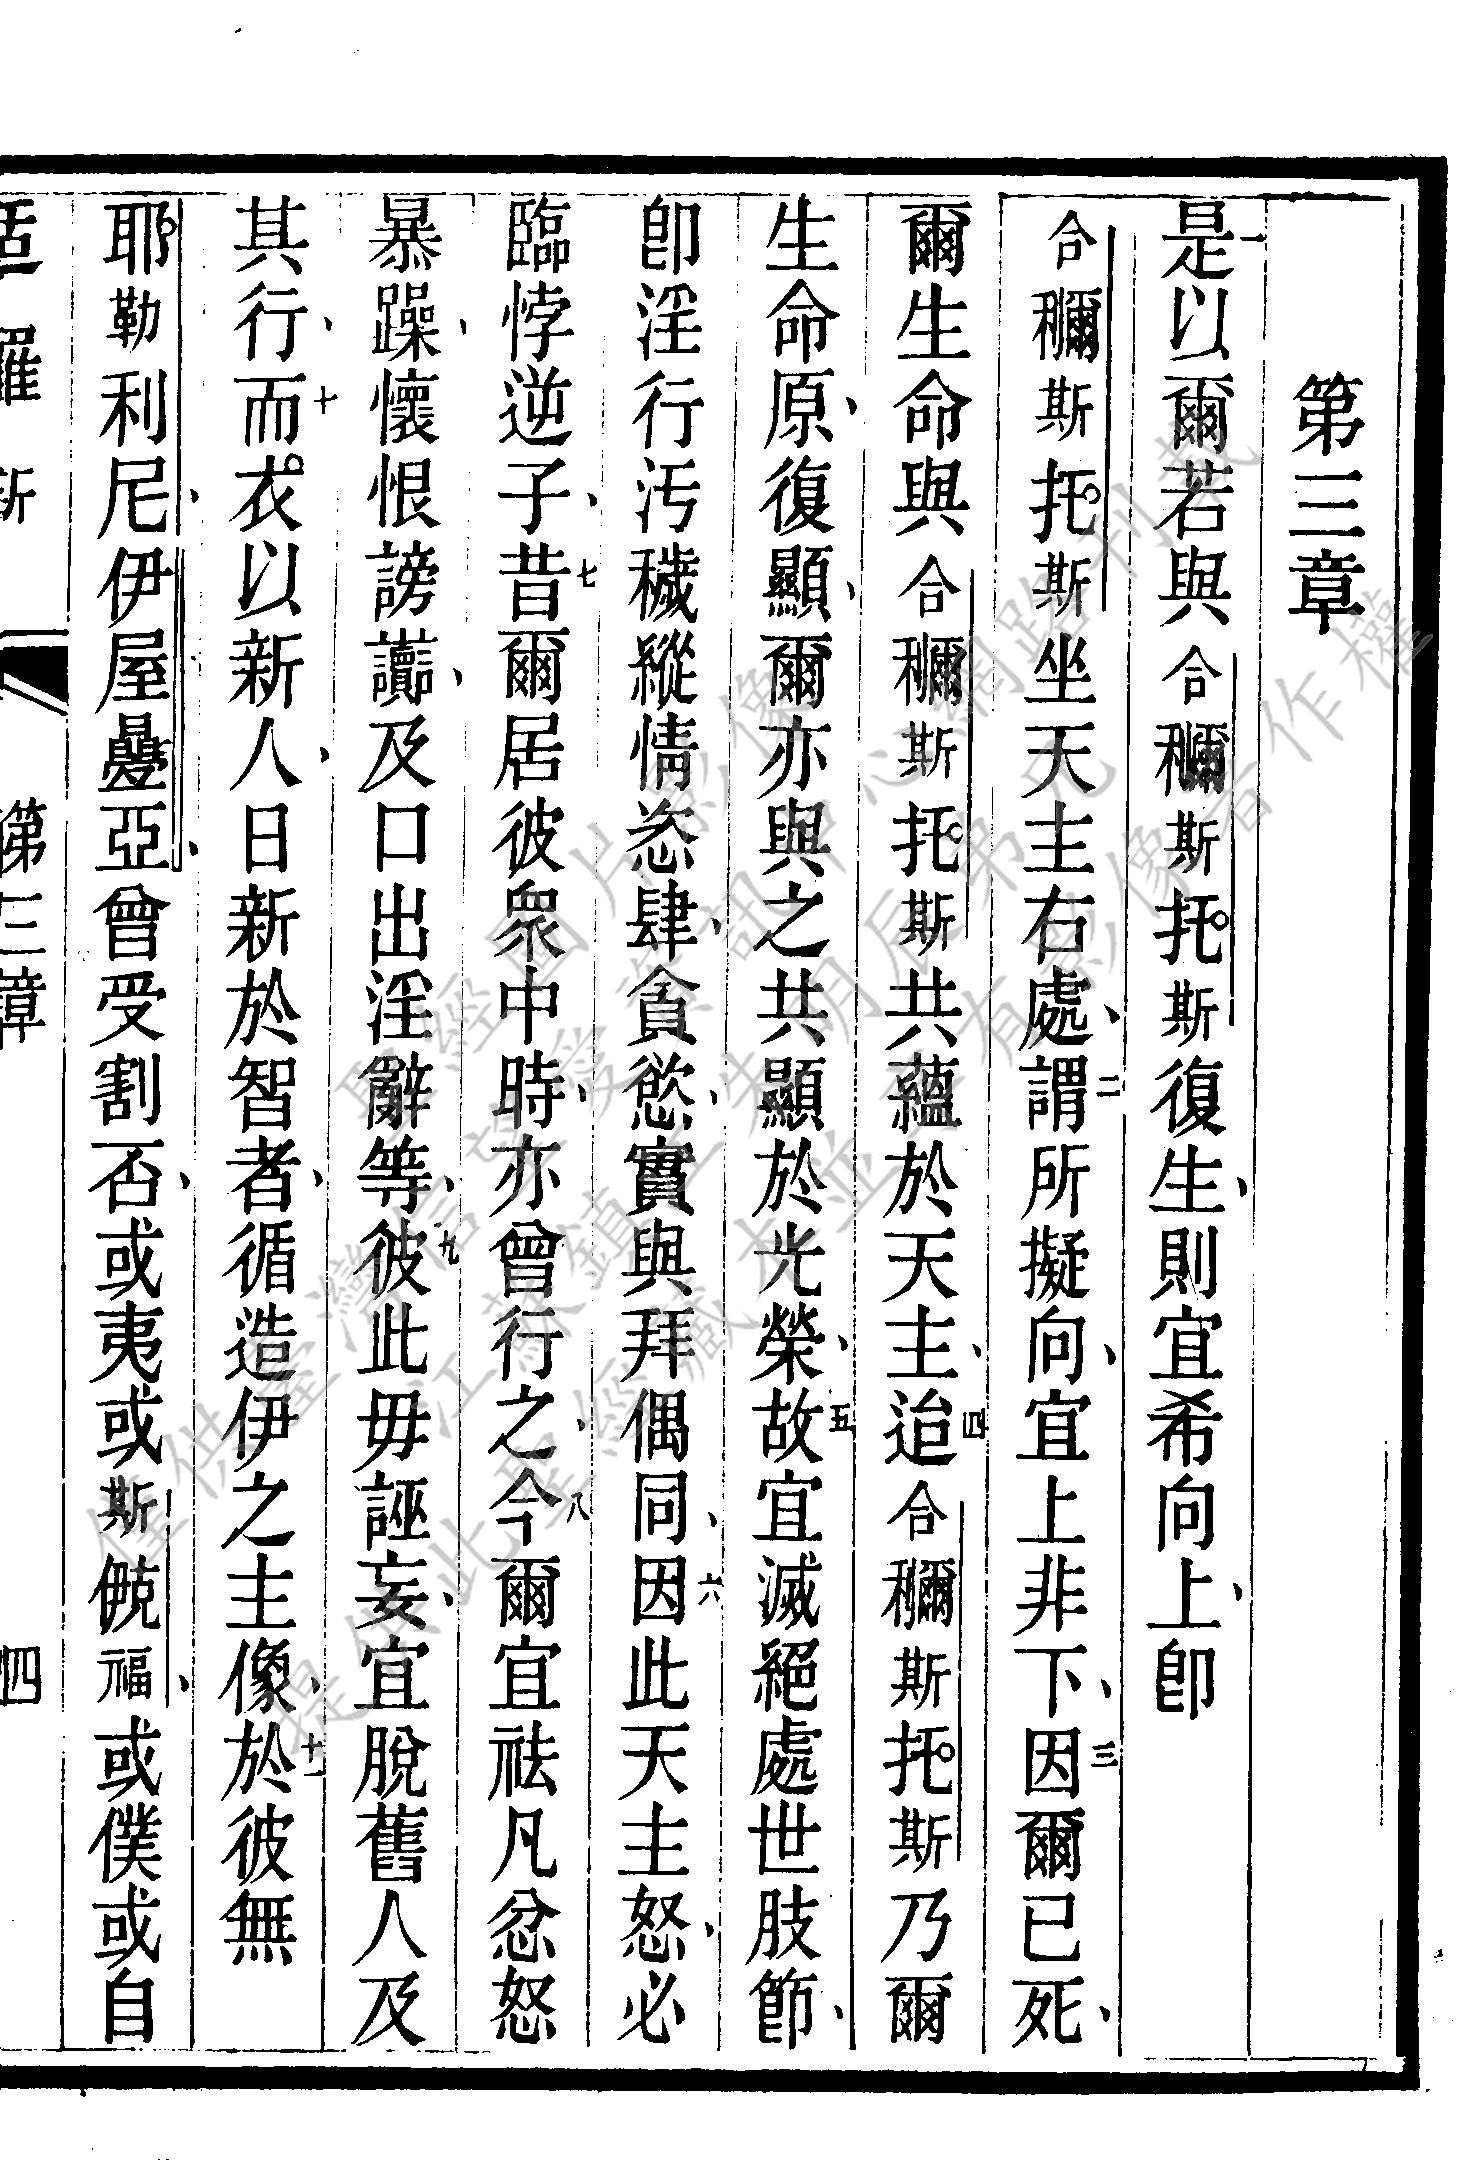 第三章
一是以爾若與合穪斯托斯復生、則宜希向上、卽
合穪斯托斯坐天主右處、二謂所擬向、宜上非下、三因爾已死、
爾生命與合穪斯托斯共蘊於天主、四迨合穪斯托斯乃爾
生命原、復顯、爾亦與之共顯於光榮、五故宜滅絕處世肢節、
卽淫行污穢縱情恣肆、貪慾、實與拜偶同、六因此天主怒、必
臨悖逆子、七昔爾居彼衆中時、亦曾行之、八今爾宜祛凡忿怒
暴躁、懷恨謗讟、及口出淫辭等、九彼此毋誣妄、宜脫舊人及
其行、十而衣以新人、日新於智者、循造伊之主像、十一於彼無
耶勒利尼、伊屋疊亞、曾受割否、或夷或斯、福、或僕或自
第三章
四
僅供臺灣信望愛資訊中心網路刊載